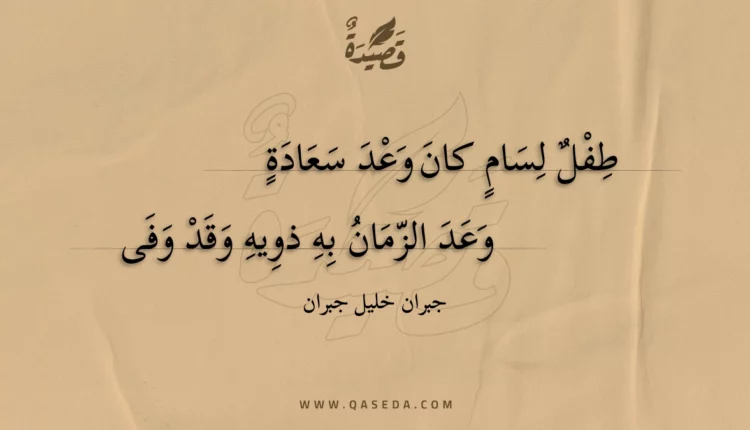 قَصِيْدَةٌ
طِفْلٌ لِسَامٍ كانَ وَعْدَ سَعَادَةٍ
وَعَدَ الزّمَانُ بِهِ ذوِيهِ وَقَدْ وَفَى
جبران خليل جبران
WWW.QASEDA.COM